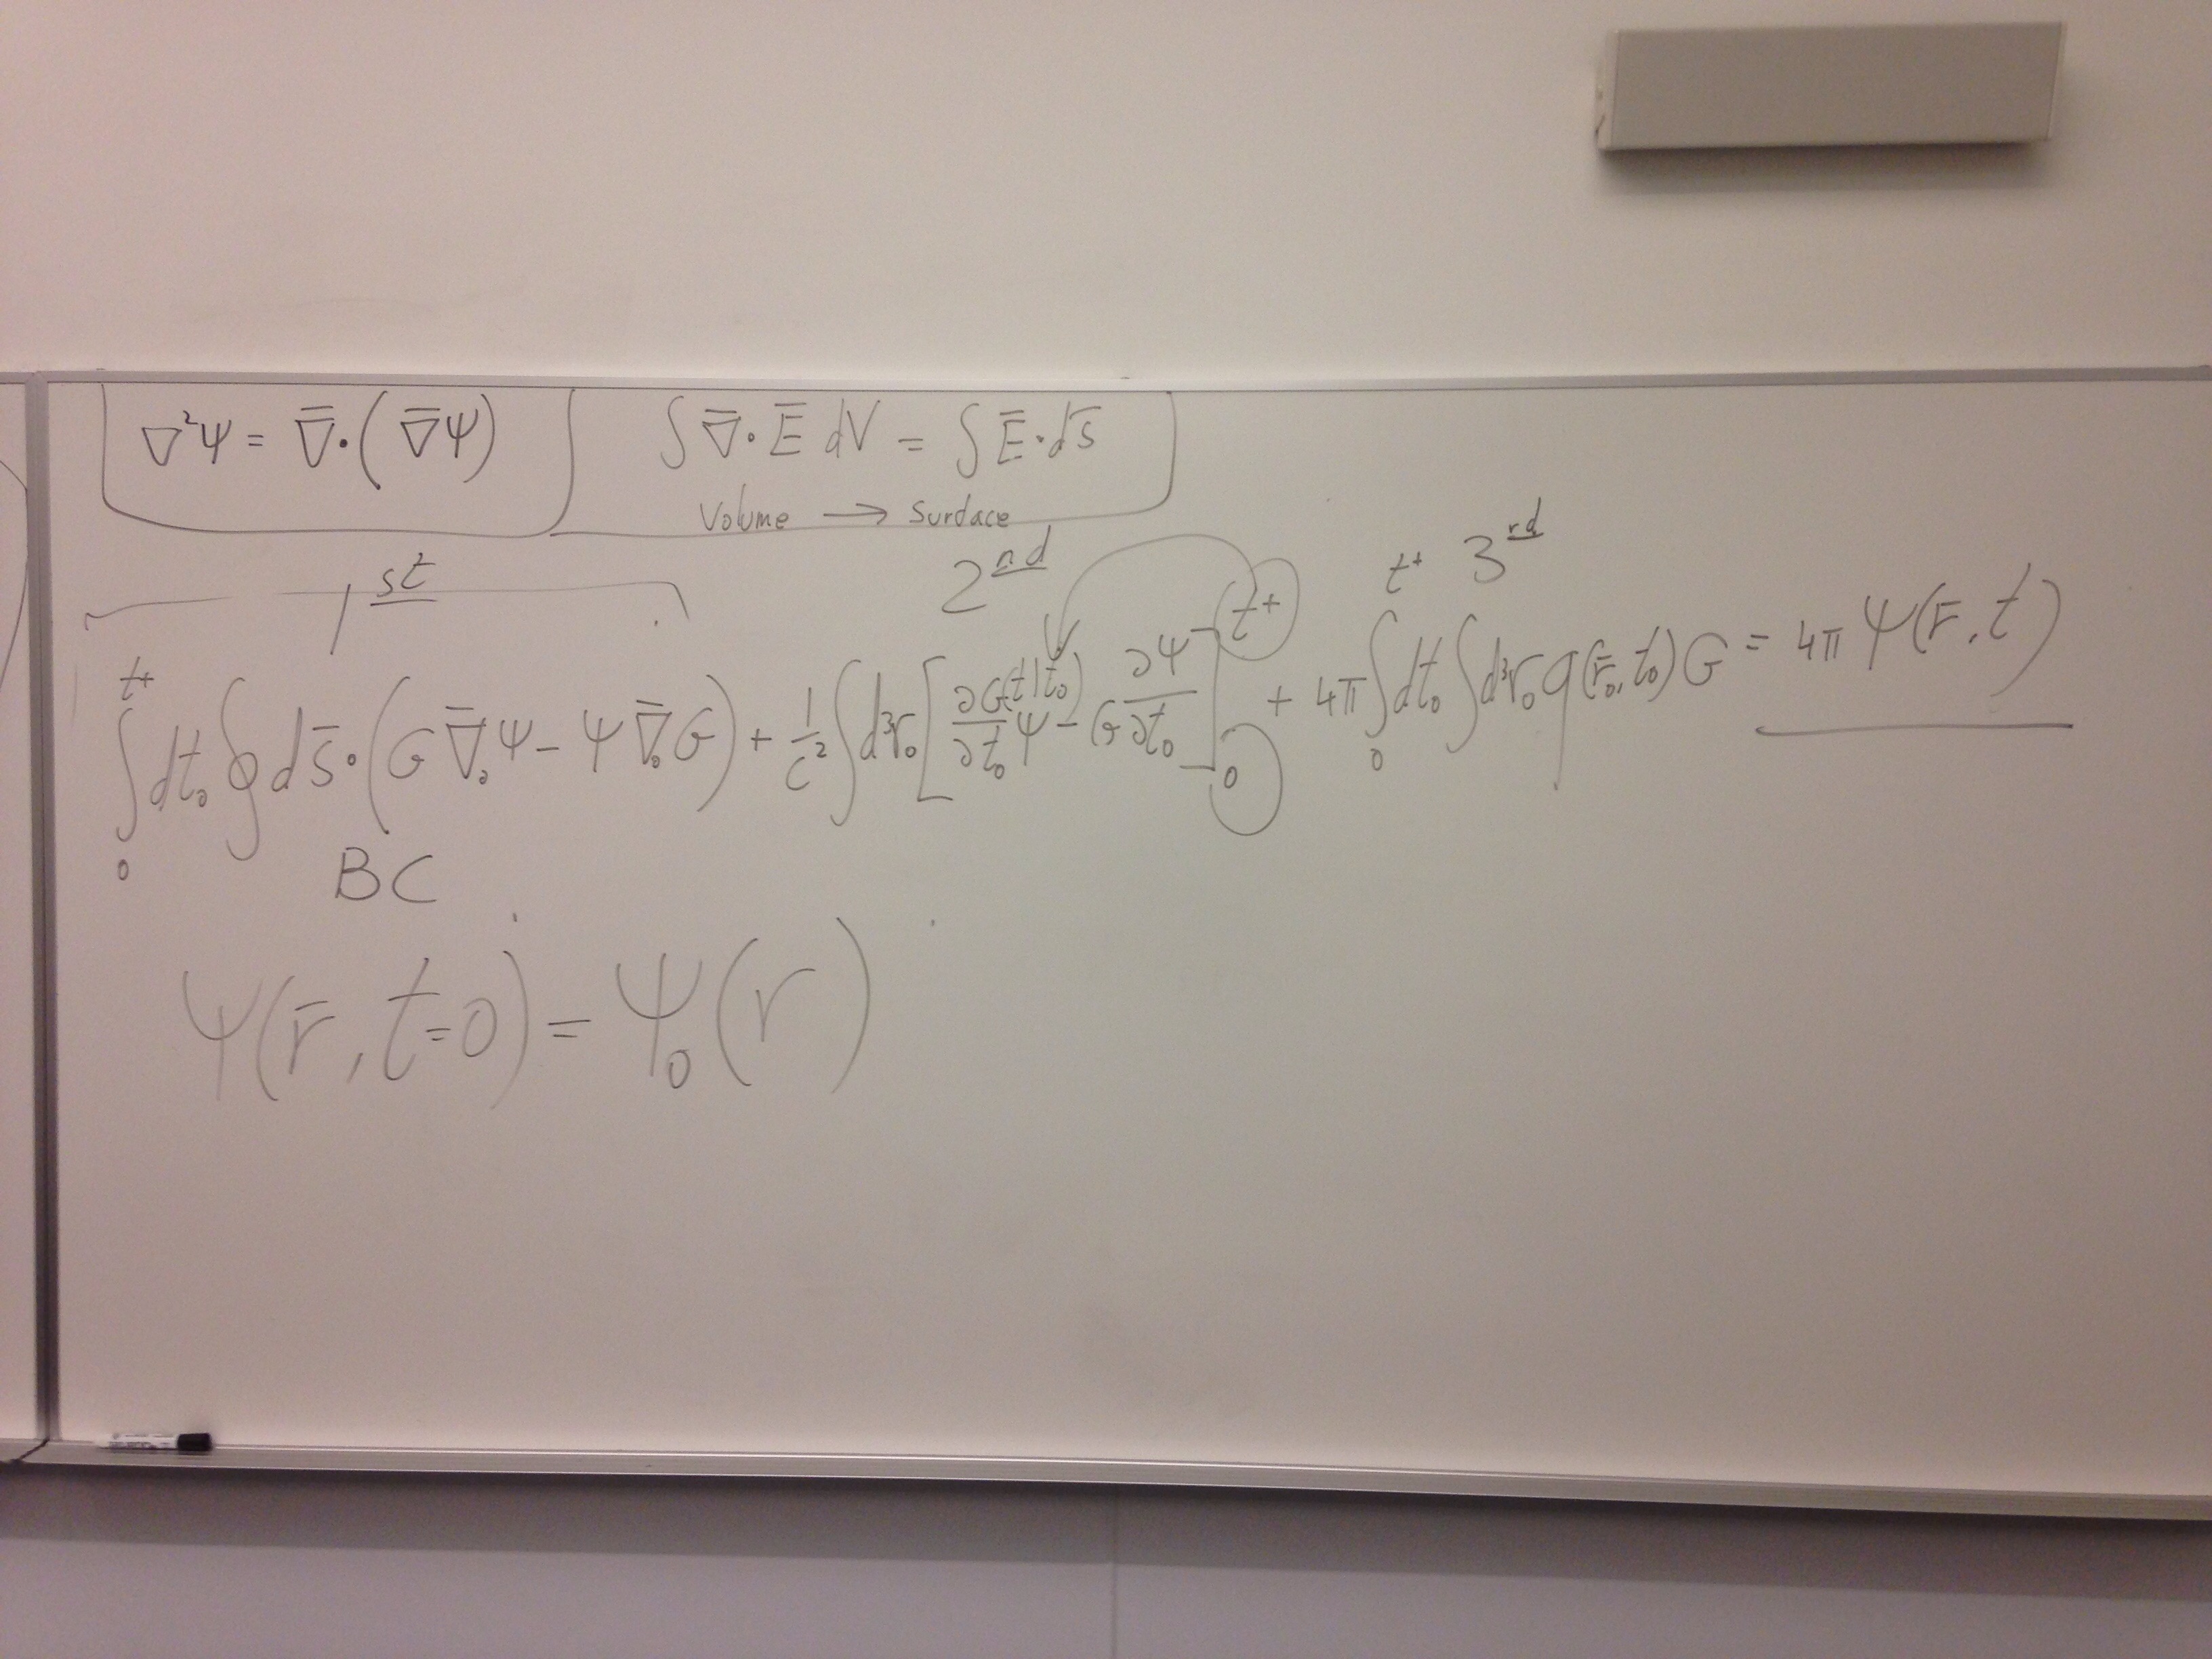 ∇²Ψ = ∇̄·(∇̄Ψ)
∫ ∇̄·E̅ dV = ∫ E̅·ds̅
Volume → Surdace
1st
2nd
3rd
∫₀^{t+} dt₀ ∮ ds̅·(G ∇̄₀Ψ − Ψ ∇̄₀G) + 1/c² ∫ d³r₀ [∂G(t|t₀)/∂t₀ Ψ − G ∂Ψ/∂t₀]₀^{t+} + 4π ∫₀^{t+} dt₀ ∫ d³r₀ q(r̅₀, t₀) G = 4π Ψ(r̅, t)
BC
Ψ(r̅, t=0) = Ψ₀(r)